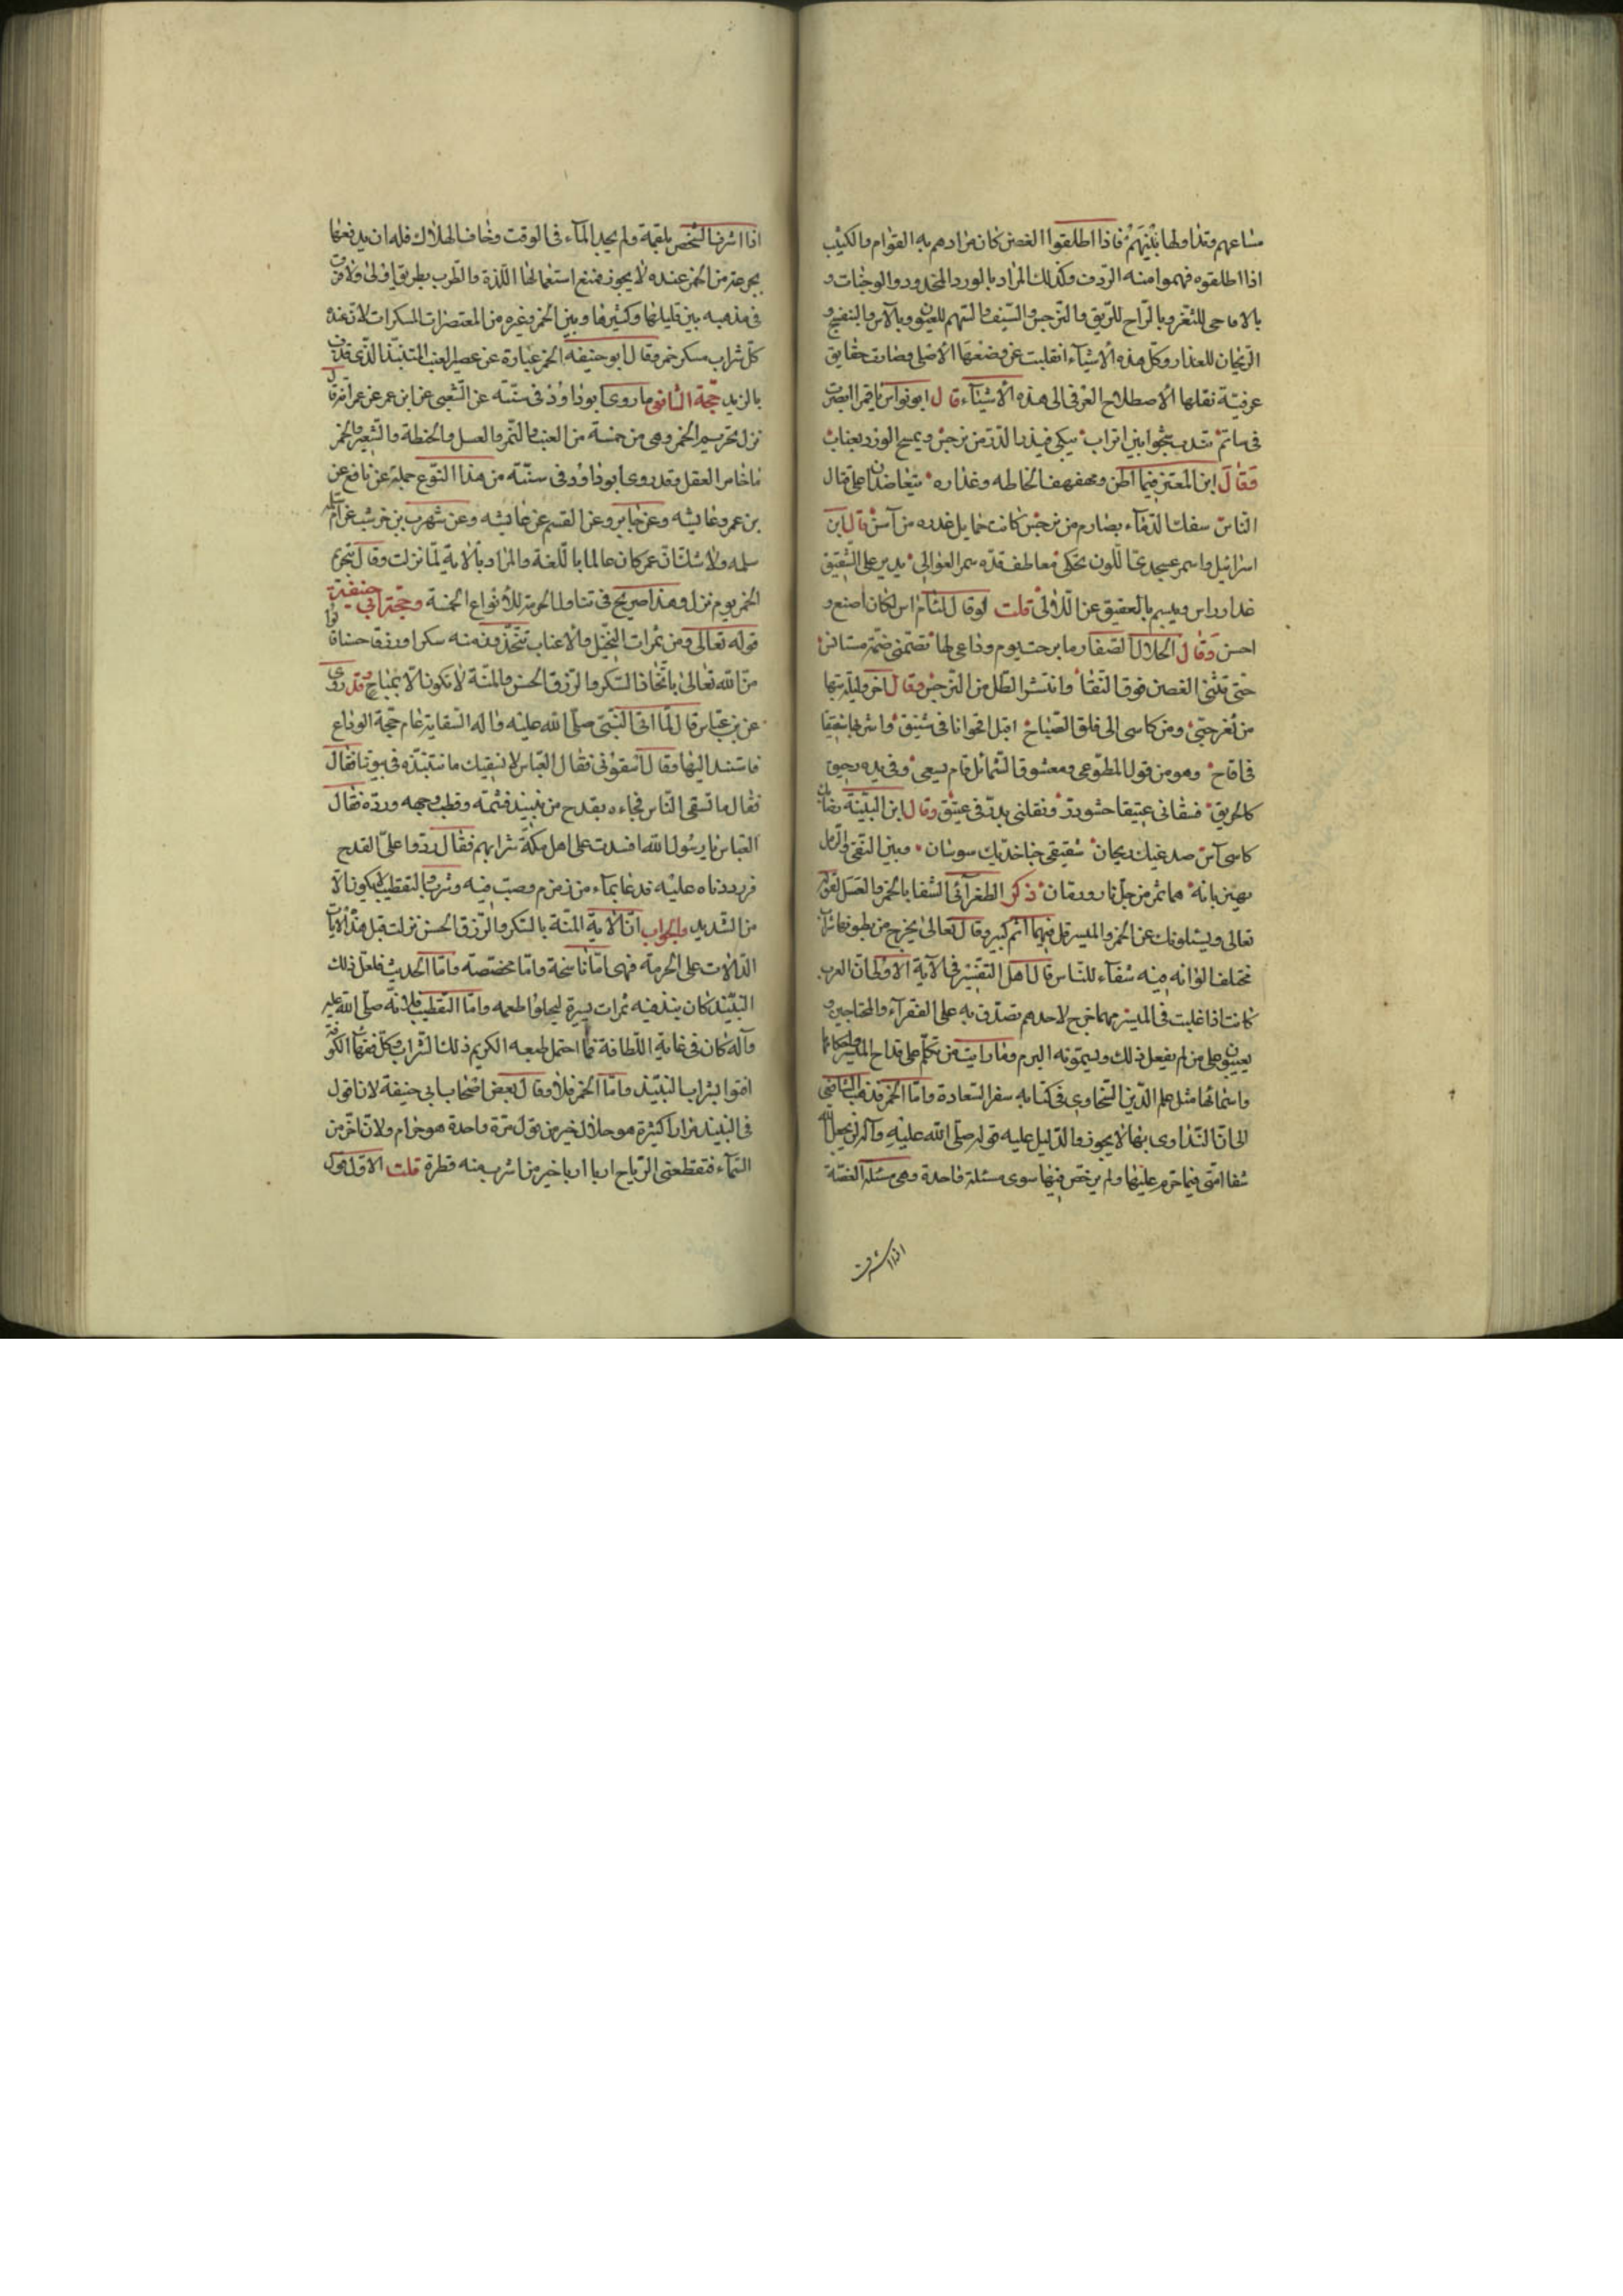 مسامعهم وتداولها بينهم فاذا اطلقوا الغصن كان مرادهم به القوام والكثيب
اذا اطلقوه فهموا منه الردف وكذلك المراد بالورد الخدود والوجنات و
بالاقاحى للثغر وبالراح للريق والنرجس والسيف والسهم للعيون وبالآس والبنفسج و
الريحان للعذار وكل هذه الأشياء انقلبت عن وضعها الاصلى وصارت حقايق
عرفية نقلها الاصطلاح العرفى الى هذه الأشياء قال ابو نواس يا قمرا ابصرت
فى مأتم يندب شجوا بين اتراب يبكى فيذرى الدر من نرجس ويمسح الورد بعناب
وقال ابن المعتز فيما اظن ومهفهف الحاظه وعذاره يتعاضدان على قتال
الناس سفك الدماء بصارم من نرجس كانت حمايل غمده من آس قال ابن
اسرائيل واسمر عسجدى اللون يحكى معاطف قده سمر العوالى يدير على الشقيق
عذار آس ويبسم بالعقيق عن اللآلى قلت لو قال لثام اس لكان اصنع و
احسن وقال الجلال الصفار ما برحت يوم وداعى لها تضمنى ضمة مستانس
حتى تثنى الغصن فوق النقا وانتشر الطل من النرجس وقال آخر وليلة بتها
من ثغر حبى ومن كاسى الى فلق الصباح اقبل اقحوانا فى شقيق واشربها شقيقا
فى اقاح وهو من قول المطوعى ومعشوق الشمائل قام يسعى وفى يده رحيق
كالحريق فسقانى عقيقا حشو در ونقلنى بدر فى عقيق وقال ابن النبيه
كاسى آس صدغيك ريحان شقيقى جنا خديك سوسان وبين النقى والرمل
يهتز بانة لها ثمر من جلنار ورمان ذكر الطغرائى الشفا بالخمر والعسل لقوله
تعالى ويسئلونك عن الخمر والميسر قل فيهما اثم كبير وقال تعالى يخرج من بطونها شراب
مختلف الوانه فيه شفآء للناس قال اهل التفسير فى الآية الاولى ان العرب
كانت اذا غلبت فى الميسر مهما خرج لاحدهم تصدق به على الفقرآء والمحتاجين و
يعيبون على من لم يفعل ذلك ويسمونه البرم وما رايت من تكلم على قداح الميسر واحكامها
واسمائها مثل علم الدين السخاوى فى كتابه سفر السعادة واما الخمر فذهب الشافعى
الى ان التداوى بها لا يجوز والدليل عليه قوله صلى الله عليه وآله لن يجعل الله
شفا امتى فيما حرم عليها ولم يرخص فيها سوى مسئلة واحدة وهى مسئلة الغصة
اذا اشرق
اذا اشرق الشخص بلقمة ولم يجد المآء فى الوقت وخاف الهلاك فله ان يدفعها
بجرعة من الخمر عنده لا يجوز فمنع استعمالها اللذة والطرب بطريق اولى ولا فرق
فى مذهبه بين قليلها وكثيرها وبين الخمر وغيره من المعتصرات المسكرات لان عنده
كل شراب مسكر خمر وقال ابو حنيفه الخمر عبارة عن عصير العنب المشتد الذى قذف
بالزبد حجة الشافعى ما روى ابو داود فى سننه عن الشعبى عن ابن عمر عن عمر انه قال
نزل تحريم الخمر وهى من خمسة من العنب والتمر والعسل والحنطة والشعير والخمر
ما خامر العقل وقد روى ابو داود فى سننه من هذا النوع جملة عن نافع عن
بن عمر وعايشه وعن جابر وعن القسم عن عايشه وعن شهر بن حوشب عن ام
سلمه ولا شك ان عمر كان عالما باللغة والمراد بالاية لما نزلت وقال تحريم
الخمر يوم نزل وهذا صريح فى تناول الحرمة للأنواع الخمسة وحجة ابى حنيفة
قوله تعالى ومن ثمرات النخيل والاعناب تتخذون منه سكرا ورزقا حسنا قالوا
من الله تعالى باتخاذ السكر والرزق الحسن والمنة لا تكون الا بمباح وقد روى
عن بن عباس قال لما اتى النبى صلى الله عليه وآله السقاية عام حجة الوداع
فاستند اليها وقال اسقونى فقال العباس الا نسقيك ما ننتبذه فى بيوتنا فقال
فقال ما تسقى الناس فجاءه بقدح من نبيذ فشمه وقطب وجهه ورده فقال
العباس يا رسول الله افسدت على اهل مكة شرابهم فقال ردوا على القدح
فرددناه عليه فدعا بمآء من زمزم وصب فيه وشرب التقطيب لا يكون الا
من الشديد والجواب ان الاية المنة بالسكر والرزق الحسن نزلت قبل هذه الآيات
الدالات على الحرمة فهى اما ناسخة واما مخصصة واما الحديث فلعل ذلك
النبيذ كان ينبذ فيه ثمرات يسيرة ليحلوا طعمه واما التقطيب فلانه صلى الله عليه
وآله كان فى غاية اللطافة فما احتمل طبعه الكريم ذلك الشراب وكل فقهآء الكوفة
افتوا بشراب النبيذ واما الخمر فلا وقال بعض اصحاب ابى حنيفة لان اقول
فى النبيذ مرارا كثيرة هو حلال خير من قول مرة واحدة هو حرام ولان اخر من
السمآء فتقطعنى الرياح اربا اربا خير من اشرب منه قطرة قلت الاول هو